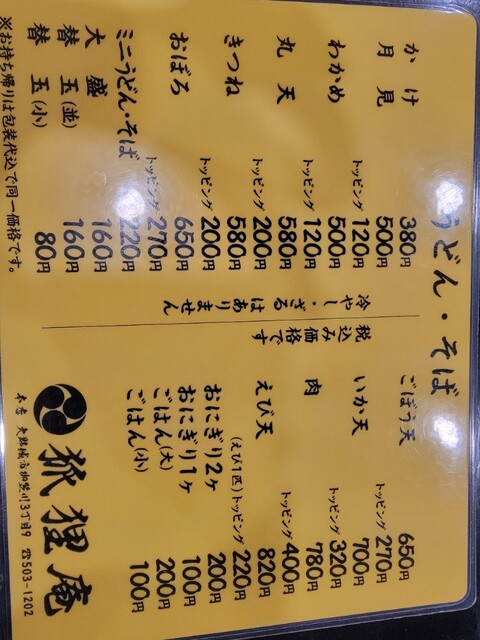 うどん・そば
かけ 380円
月見 500円
トッピング 120円
わかめ 500円
トッピング 120円
丸天 580円
トッピング 200円
きつね 580円
トッピング 200円
おぼろ 650円
トッピング 270円
ミニうどん・そば 220円
大盛 160円
替玉(並) 160円
替玉(小) 80円
※お持ち帰りは包装代込で同一価格です。
冷やし・ざるはありません
税込み価格です
ごぼう天 650円
トッピング 270円
いか天 700円
トッピング 320円
肉 780円
トッピング 400円
えび天 820円
(えび1匹)トッピング 220円
おにぎり2ケ 200円
おにぎり1ケ 100円
ごはん(大) 200円
ごはん(小) 100円
狐狸庵
本店 大野城市御笠川3丁目9 ☎503-1202